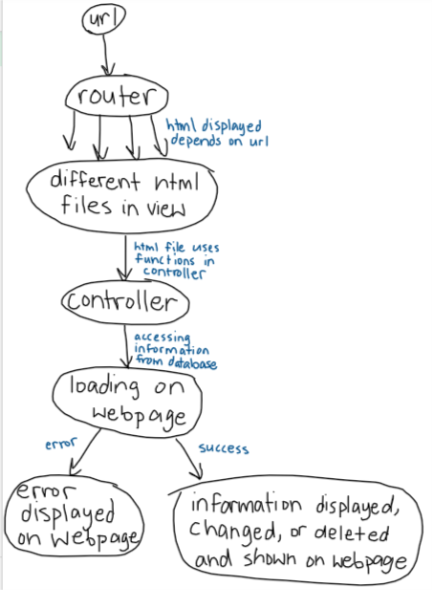 url
router
html displayed
depends on url
different html
files in view
html file uses
functions in
controller
controller
accessing
information
from database
loading on
webpage
error
success
error
displayed
on webpage
information displayed,
changed, or deleted
and shown on webpage